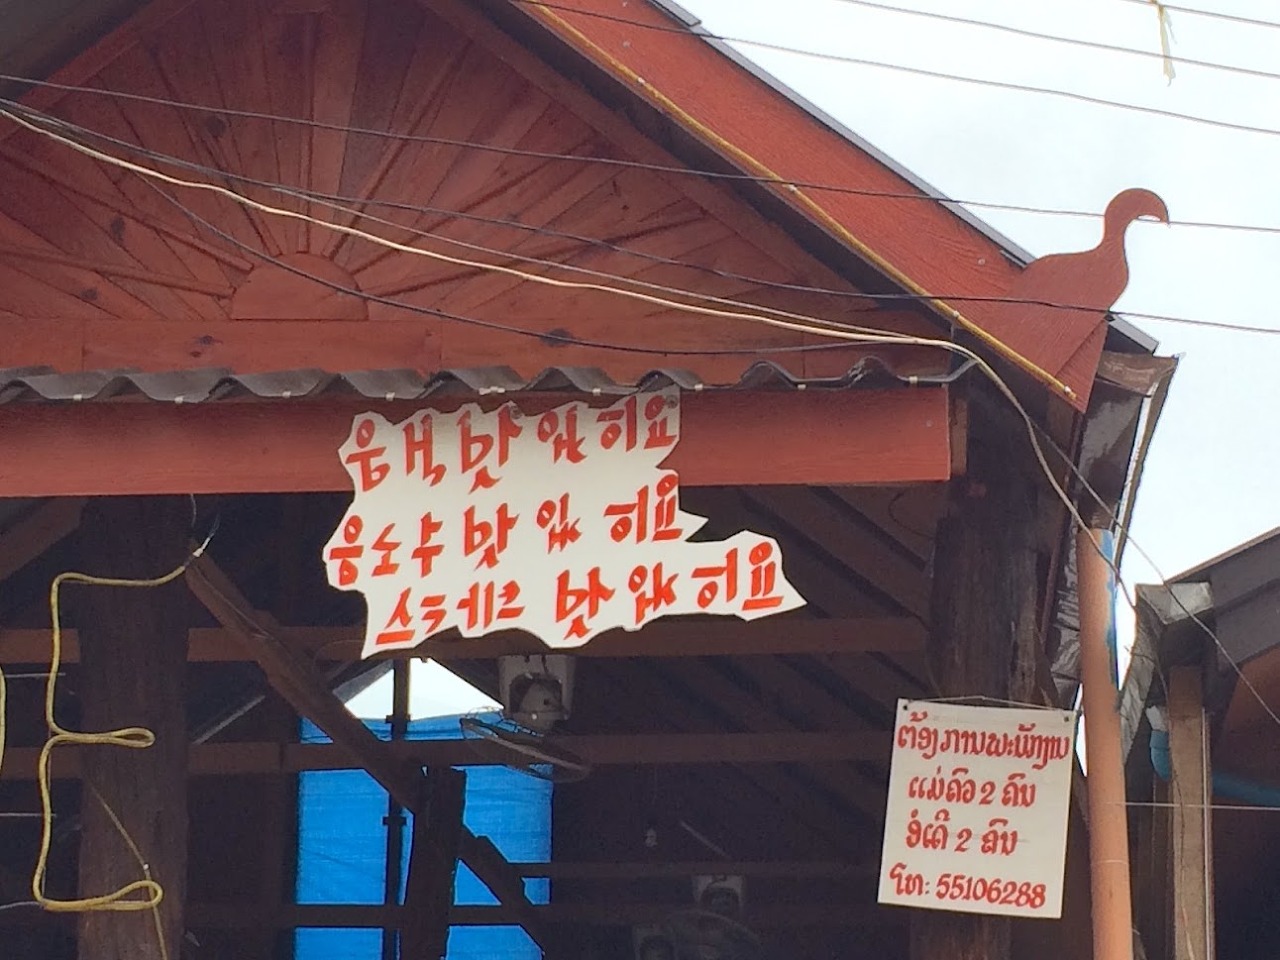 웅벅 맛 있 히요
응노수 맛 있 히요
스테이크 맛 있 히요
ຕ້ອງການພະນັກງານ
ແມ່ຄົວ 2 ຄົນ
ອໍເດີ 2 ຄົນ
ໂທ: 55106288